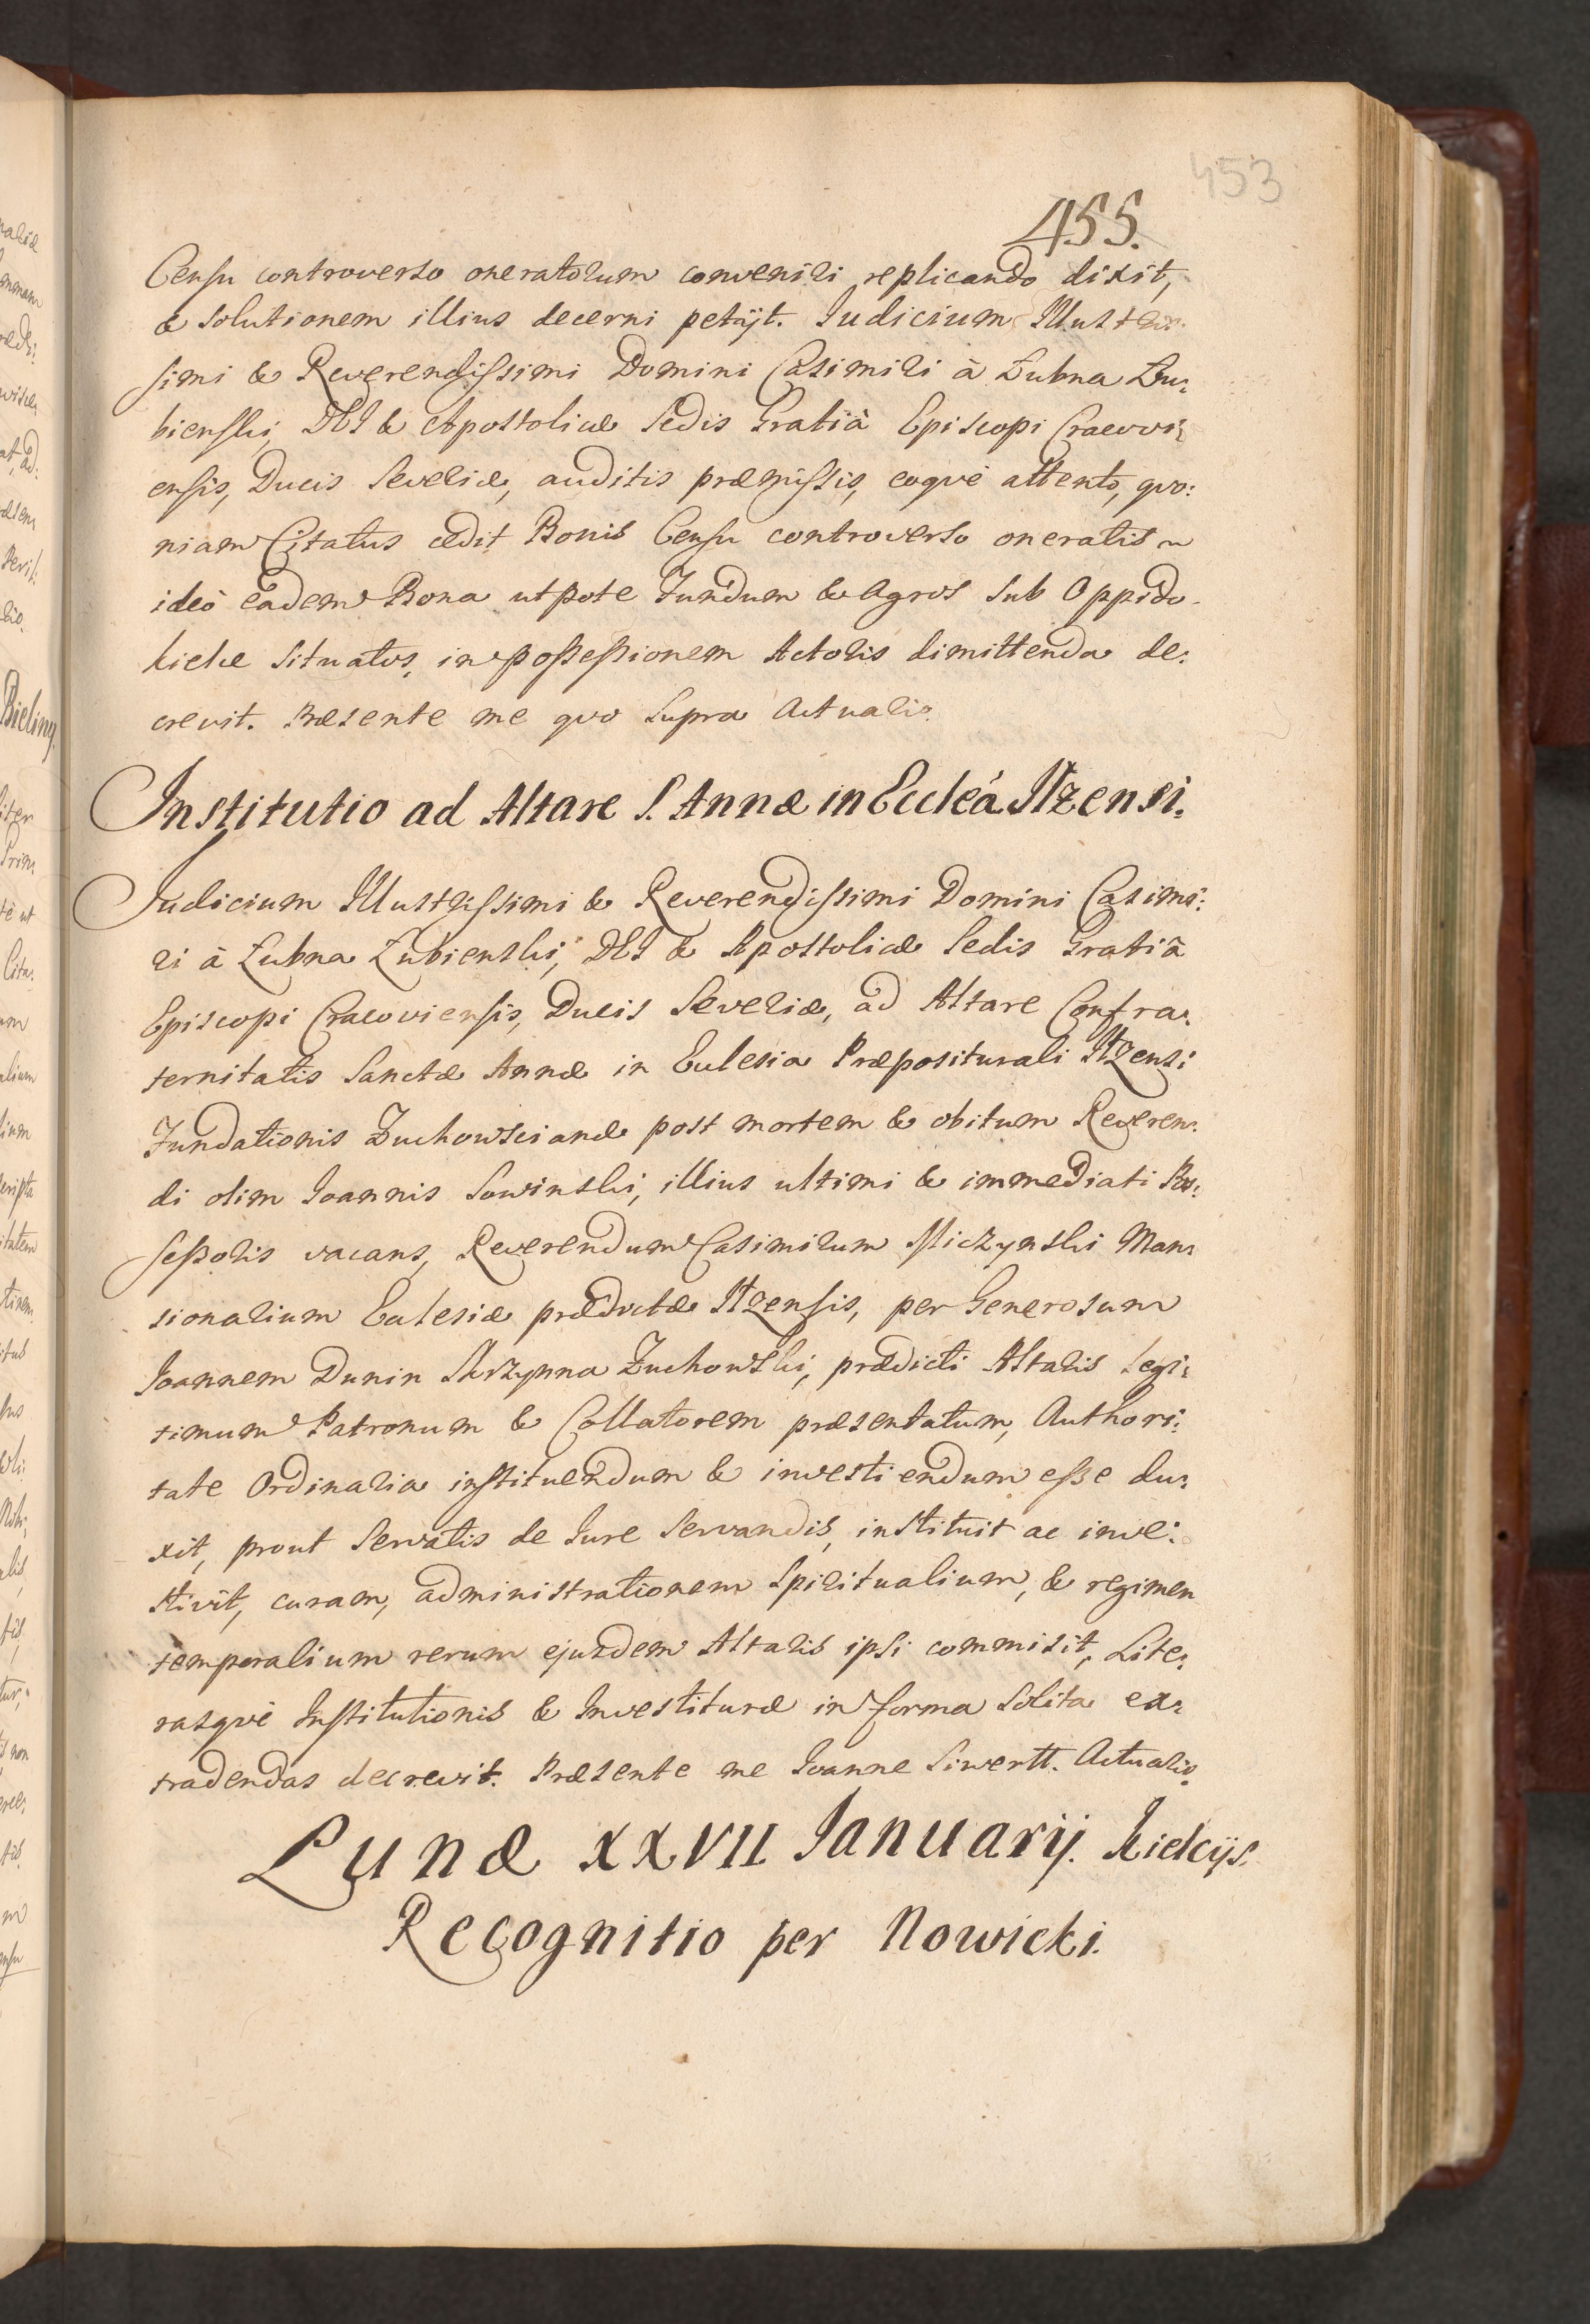 453
455.
Censu controverso oneratorum conveniri replicando dixit,
& solutionem illius decerni petijt. Iudicium Illustris:
simi & Reverendissimi Domini Casimiri à Łubna Łu:
bienski, DEI & Apostolicæ Sedis Gratiâ Episcopi Cracovi:
ensis, Ducis Severiæ, auditis præmissis, eoquè attento, quo:
niam Citatus cedit Bonis Censu controverso oneratis
ideò eadem Bona utpote Fundum & Agros sub Oppido
Kielce situatos, in possessionem Actoris dimittenda de:
crevit. Præsente me quo supra Actuario.
Institutio ad Altare S. Annæ in Eccleâ Iłzensi.
Iudicium Illustrissimi & Reverendissimi Domini Casimi:
ri à Łubna Łubienski, DEI & Apostolicæ Sedis Gratiâ
Episcopi Cracoviensis, Ducis Severiæ, ad Altare Confra:
ternitatis Sanctæ Annæ in Ecclesia Præpositurali Iłzensi
Fundationis Zuchowscianæ post mortem & obitum Reveren:
di olim Joannis Sowinski, illius ultimi & immediati Pos:
sessoris vacans, Reverendum Casimirum Miczynski Man:
sionarium Ecclesiæ prædictæ Iłzensis, per Generosum
Joannem Dunin Skrzynna Zuchowski, prædicti Altaris legi:
timum Patronum & Collatorem præsentatum, Authori:
tate Ordinaria instituendum & investiendum esse du:
xit, prout servatis de Iure servandis, instituit ac inve:
stivit, curam, administrationem Spiritualium, & regimen
temporalium rerum ejusdem Altaris ipsi commisit, Lite:
rasquè Institutionis & Investituræ in forma solita ex:
tradendas decrevit. Præsente me Joanne Siwertt. Actuario
Lunæ XXVII Ianuarij. Kielcijs.
Recognitio per Nowicki.